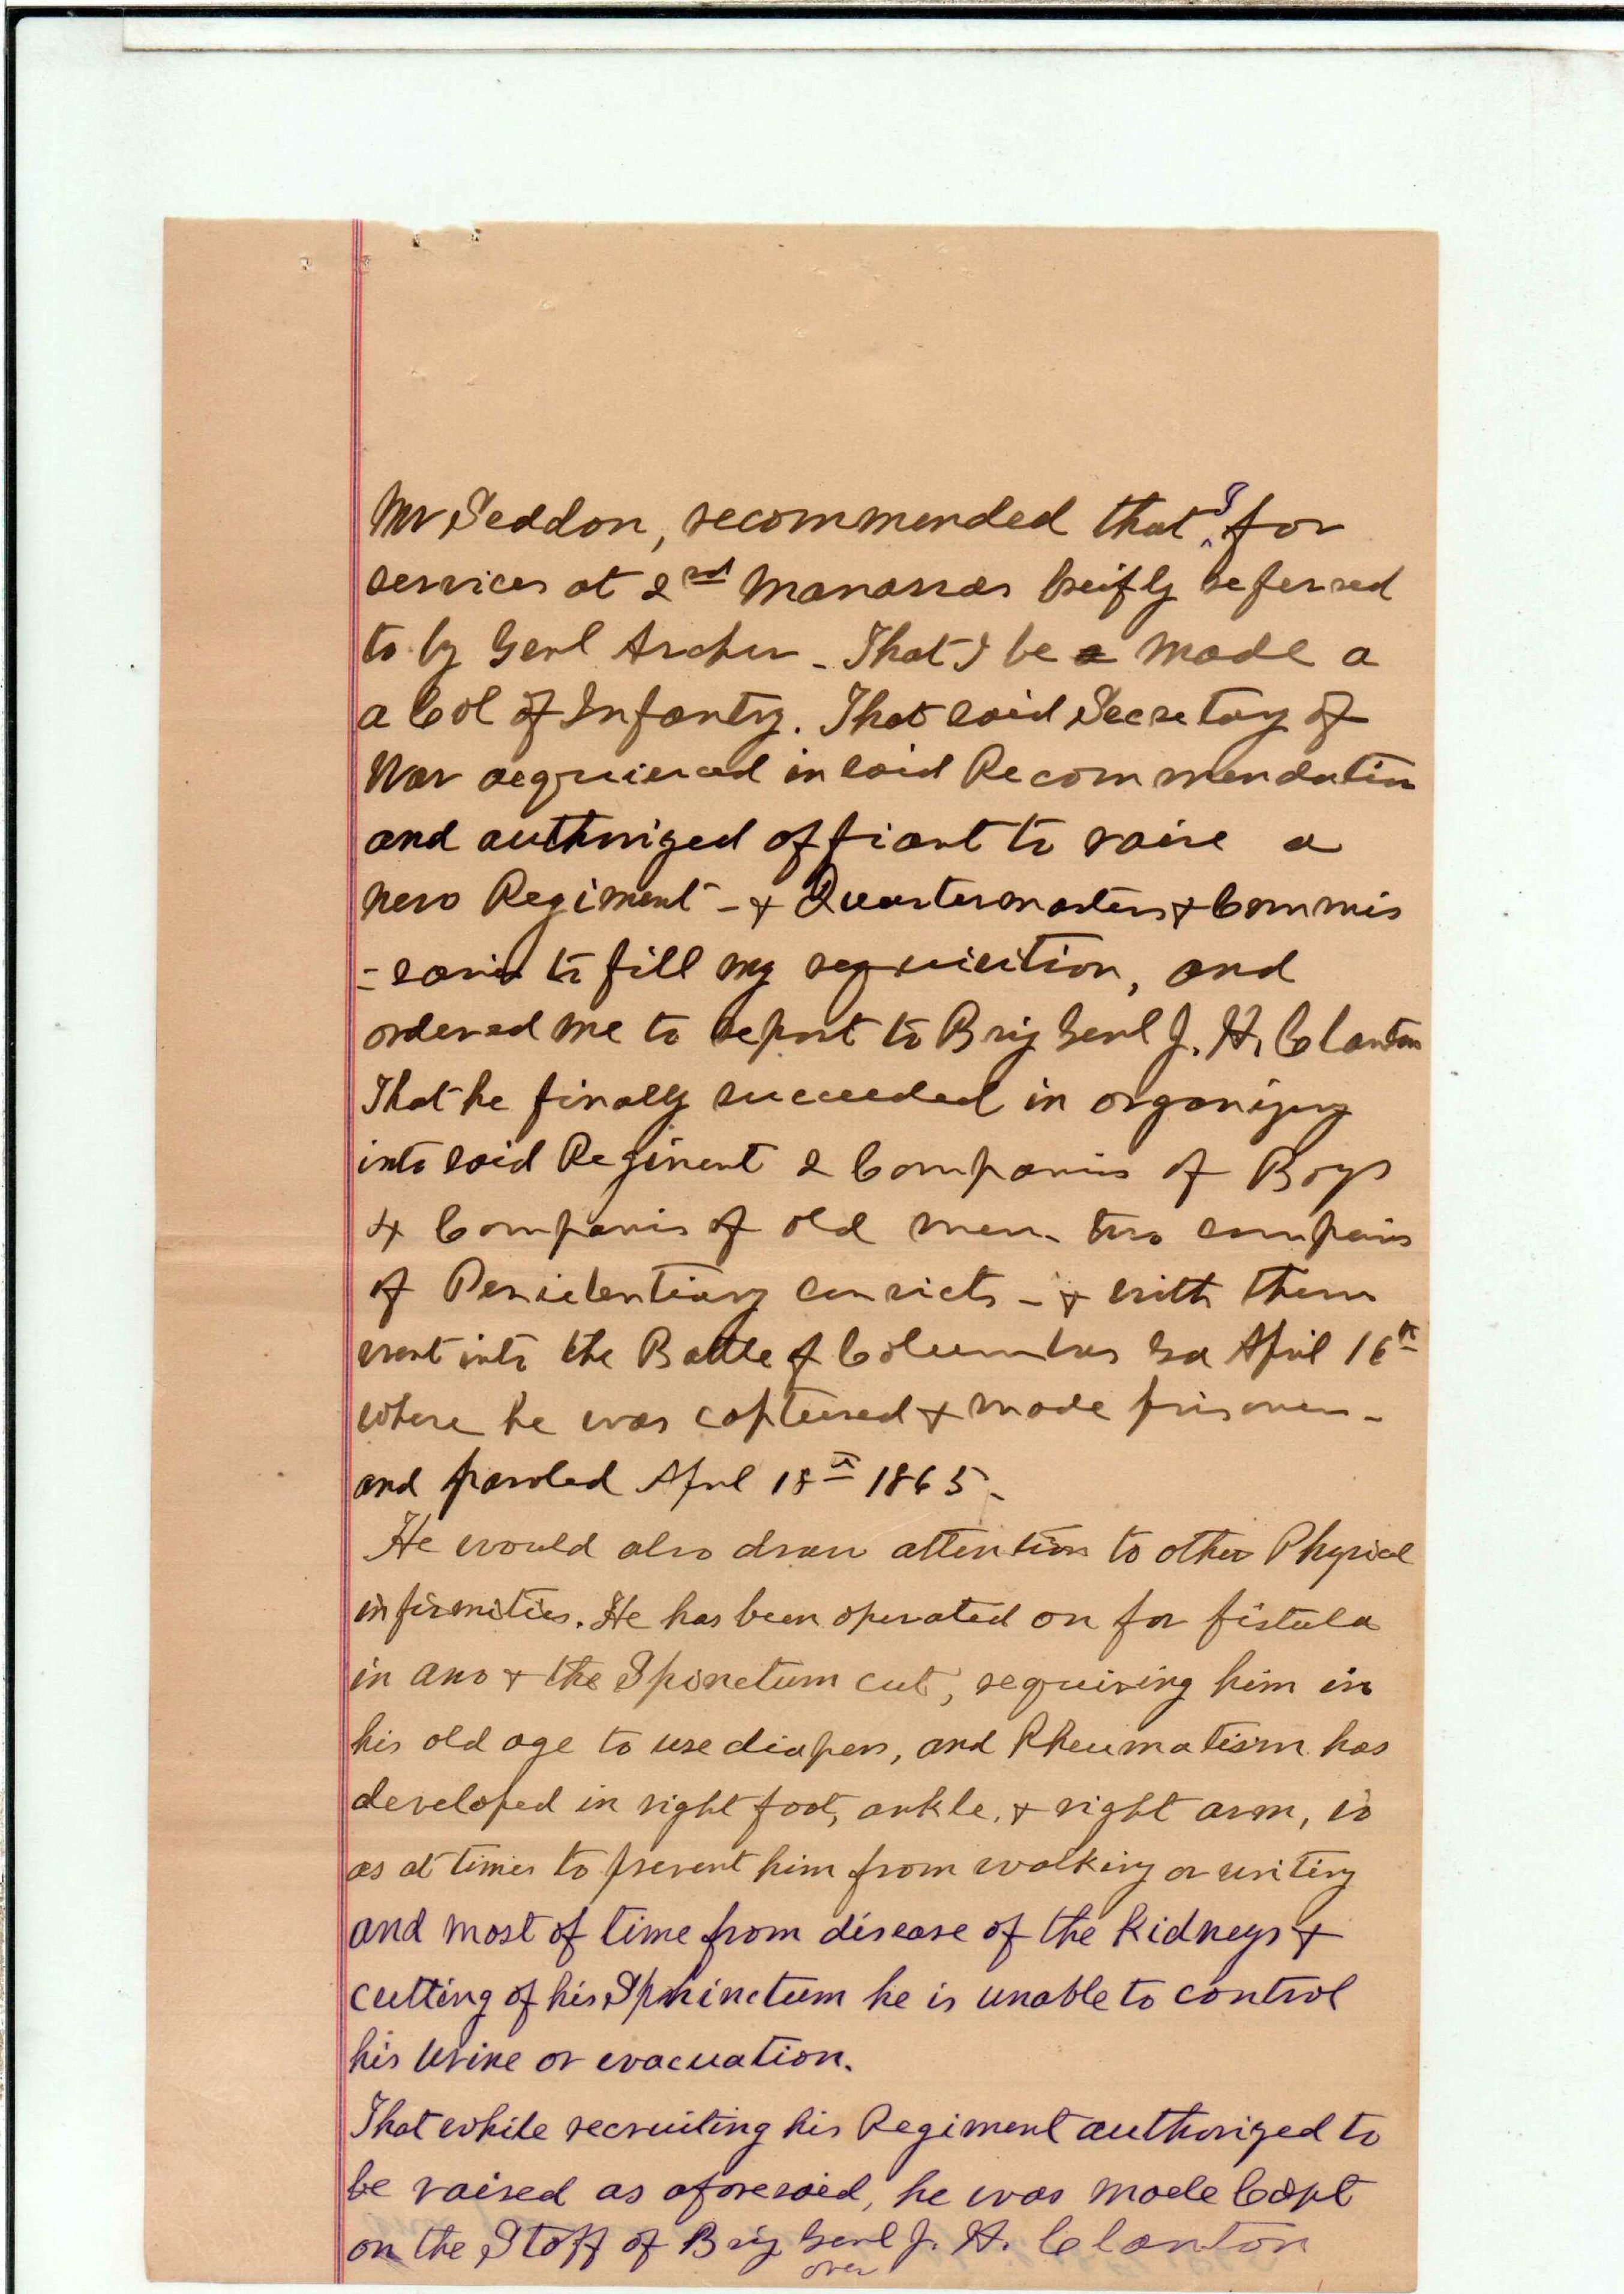 Mr Seddon, recommended that I for
services at 2nd Manassas breifly referred
to by Genl Archer - That I be a made a
a Col of Infantry. That said Secretary of
War acquiesced in said Recommendation
and authorized affiant to raise a
new Regiment - & Quartermasters & Commis
- saries to fill my requisition, and
ordered me to report to Brig Genl J. H. Clanton
That he finally succeeded in organizing
into said Regiment 2 Companies of Boys
4 Companies of old men - two companies
of Penitentiary convicts - & with them
went into the Battle of Columbus Ga April 16th
where he was captured & made prisoner -
and paroled Aprl 18th 1865 -
He would also draw attention to other Physical
infirmities. He has been operated on for fistula
in ano & the Spinctum cut, requiring him in
his old age to use diapers, and Rheumatism has
developed in right foot, ankle, & right arm, so
as at times to prevent him from walking or writing
and most of time from disease of the Kidneys &
cutting of his Sphinctum he is unable to control
his Urine or evacuation.
That while recruiting his Regiment authorized to
be raised as aforesaid, he was made Capt
on the Staff of Brig Genl J. H. Clanton
over